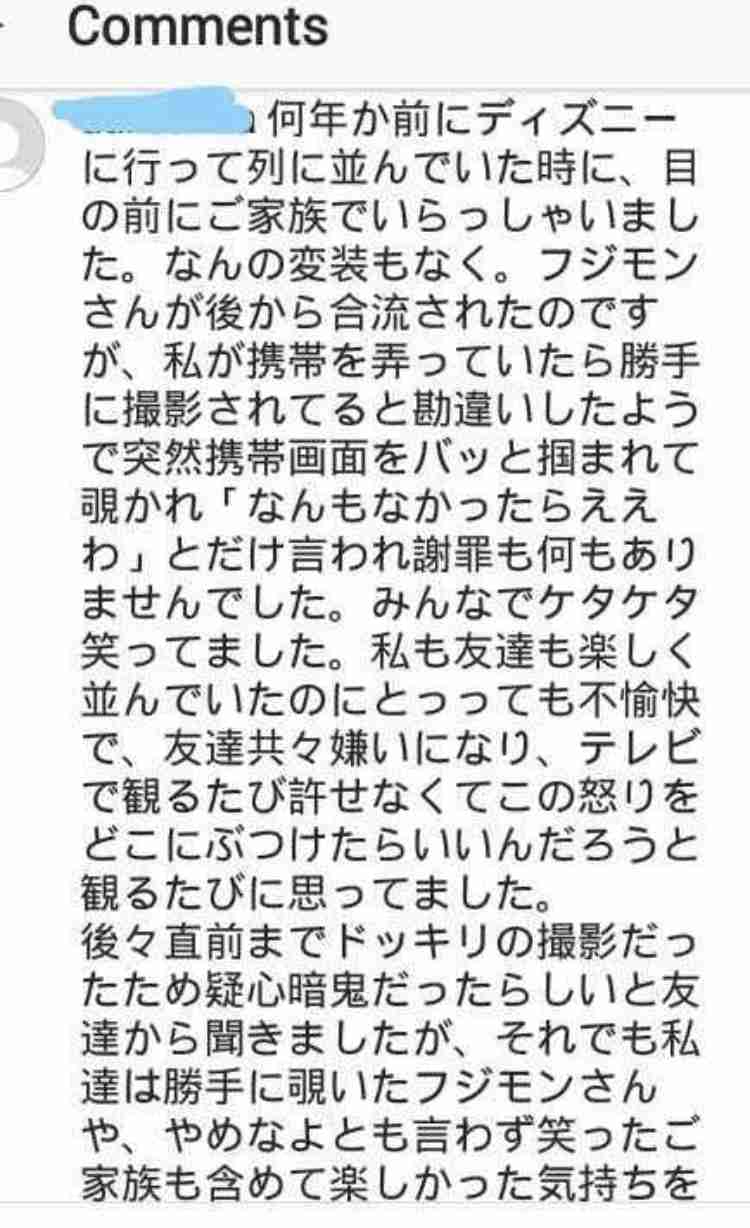 Comments
何年か前にディズニー
に行って列に並んでいた時に、目
の前にご家族でいらっしゃいまし
た。なんの変装もなく。フジモン
さんが後から合流されたのです
が、私が携帯を弄っていたら勝手
に撮影されてると勘違いしたよう
で突然携帯画面をバッと掴まれて
覗かれ「なんもなかったらええ
わ」とだけ言われ謝罪も何もあり
ませんでした。みんなでケタケタ
笑ってました。私も友達も楽しく
並んでいたのにとっっても不愉快
で、友達共々嫌いになり、テレビ
で観るたび許せなくてこの怒りを
どこにぶつけたらいいんだろうと
観るたびに思ってました。
後々直前までドッキリの撮影だっ
たため疑心暗鬼だったらしいと友
達から聞きましたが、それでも私
達は勝手に覗いたフジモンさん
や、やめなよとも言わず笑ったご
家族も含めて楽しかった気持ちを